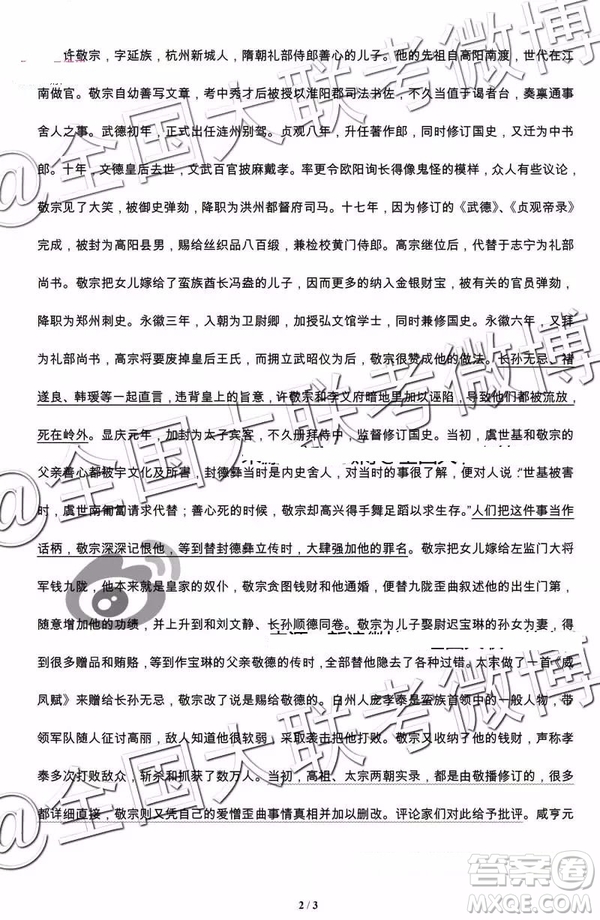 许敬宗，字延族，杭州新城人，隋朝礼部侍郎善心的儿子。他的先祖自高阳南渡，世代在江
南做官。敬宗自幼善写文章，考中秀才后被授予淮阳郡司法书佐，不久当值于谒者台，奏禀通事
舍人之事。武德初年，正式出任涟州别驾。贞观八年，升任著作郎，同时修订国史，不久改为中书
郎。十年，文德皇后去世，文武百官披麻戴孝。率更令欧阳询长得像鬼怪的模样，众人有些议论，
敬宗见了大笑，被御史弹劾，降职为洪州都督府司马。十七年，因为修订的《武德》、《贞观帝录》
完成，被封为高阳县男，赐给丝织品八百缎，兼检校黄门侍郎。高宗继位后，代替于志宁为礼部
尚书。敬宗把女儿嫁给了蛮族酋长冯盎的儿子，因而更多的纳入金银财宝，被有关的官员弹劾，
降职为郑州刺史。永徽三年，入朝为卫尉卿，加授弘文馆学士，同时修订国史。永徽六年，又拜
为礼部尚书，高宗将要废掉皇后王氏，而设立武昭仪为皇后，敬宗很赞成他的做法。长孙无忌、褚
遂良、韩瑗等一起直言，违背皇上的旨意，许敬宗和李义府暗地里加以诬陷，导致他们都被流放，
死在岭外。显庆元年，加封为太子宾客，不久册拜侍中，监督修订国史。当初，虞世基和敬宗的
父亲善心都被宇文化及所害，封德彝当时是内史舍人，对当时的事很了解，便对人说："世基被害
时，虞世南匍匐请求代替；善心死的时候，敬宗却高兴得手舞足蹈以求生存。"人们把这件事当作
话柄，敬宗深深记恨他，等到替封德彝立传时，大肆强加他的罪名。敬宗把女儿嫁给左监门大将
军钱九陇，他本来是皇家的奴仆，敬宗贪图钱财和他通婚，便替九陇歪曲叙述他的出生门第，
随意增加他的功绩，并升到和刘文静、长孙顺德同卷。敬宗为儿子娶尉迟宝琳的孙女为妻，得
到很多赠品和贿赂，等到作宝琳的父亲敬德的传时，全部替他隐去了各种过错。太宗做了一首《威
凤赋》来赠给长孙无忌，敬宗改了说是赐给敬德的。白州人庞孝泰是蛮族首领中的一般人物，带
领军队随人征讨高丽，敌人知道他很软弱，采取袭击把他打败。敬宗又收纳了他的钱财，声称孝
泰多次打败敌众，斩杀和抓获了数万人。当初，高祖、太宗两朝实录，都是由敬播修订的，很多
都详细直接，敬宗则又凭自己的爱憎歪曲事情真相并加以删改。评论家们对此给予批评。咸亨元
2 / 3
@全国大联考微博
答案圈
MXQE.COM